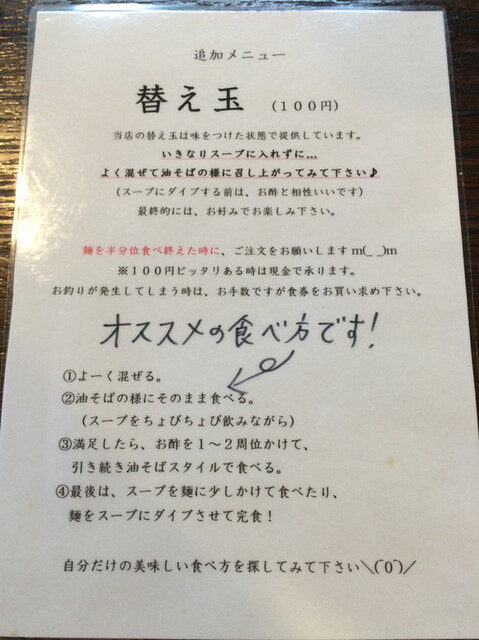 追加メニュー
替え玉 (100円)
当店の替え玉は味をつけた状態で提供しています。
いきなりスープに入れずに…
よく混ぜて油そばの様に召し上がってみて下さい♪
(スープにダイブする前は、お酢と相性いいです)
最終的には、お好みでお楽しみ下さい。
麺を半分位食べ終えた時に、ご注文をお願いしますm(_ _)m
※100円ピッタリある時は現金で承ります。
お釣りが発生してしまう時は、お手数ですが食券をお買い求め下さい。
オススメの食べ方です!
①よーく混ぜる。
②油そばの様にそのまま食べる。
(スープをちょびちょび飲みながら)
③満足したら、お酢を1〜2周位かけて、
引き続き油そばスタイルで食べる。
④最後は、スープを麺に少しかけて食べたり、
麺をスープにダイブさせて完食!
自分だけの美味しい食べ方を探してみて下さい\(^0^)/